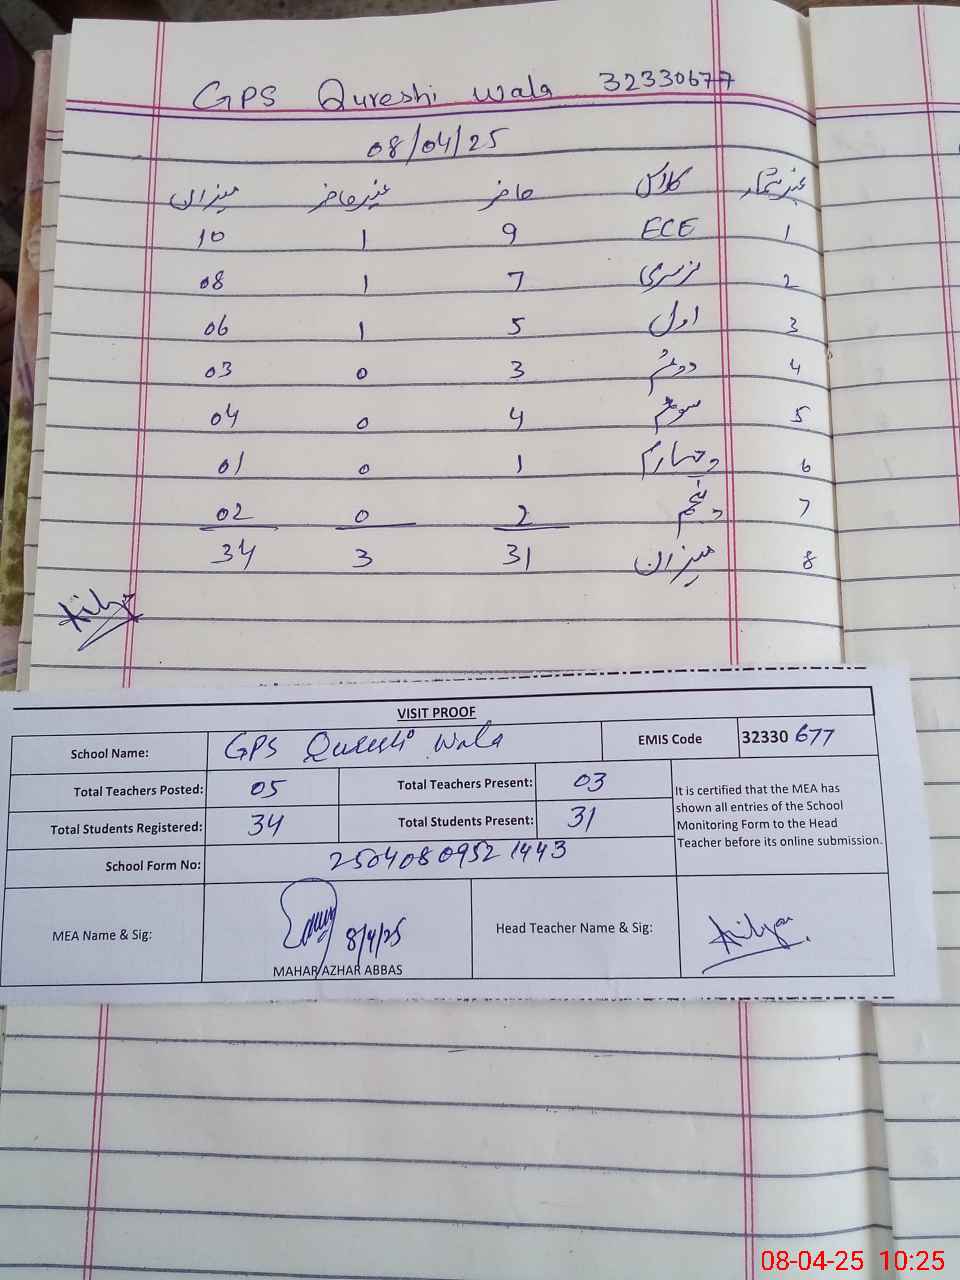 GPS Qureshi Wala 32330677
08/04/25
نمبر شمار کلاس حاضر غیر حاضر میزان
1 ECE 9 1 10
2 نرسری 7 1 08
3 اول 5 1 06
4 دوئم 3 0 03
5 سوئم 4 0 04
6 چہارم 1 0 01
7 پنجم 2 0 02
8 میزان 31 3 34
VISIT PROOF
School Name: GPS Qureshi Wala EMIS Code 32330 677
Total Teachers Posted: 05 Total Teachers Present: 03
Total Students Registered: 34 Total Students Present: 31
It is certified that the MEA has
shown all entries of the School
Monitoring Form to the Head
Teacher before its online submission.
School Form No: 250408 0952 1443
MEA Name & Sig: 8/4/25
MAHAR AZHAR ABBAS
Head Teacher Name & Sig:
08-04-25 10:25